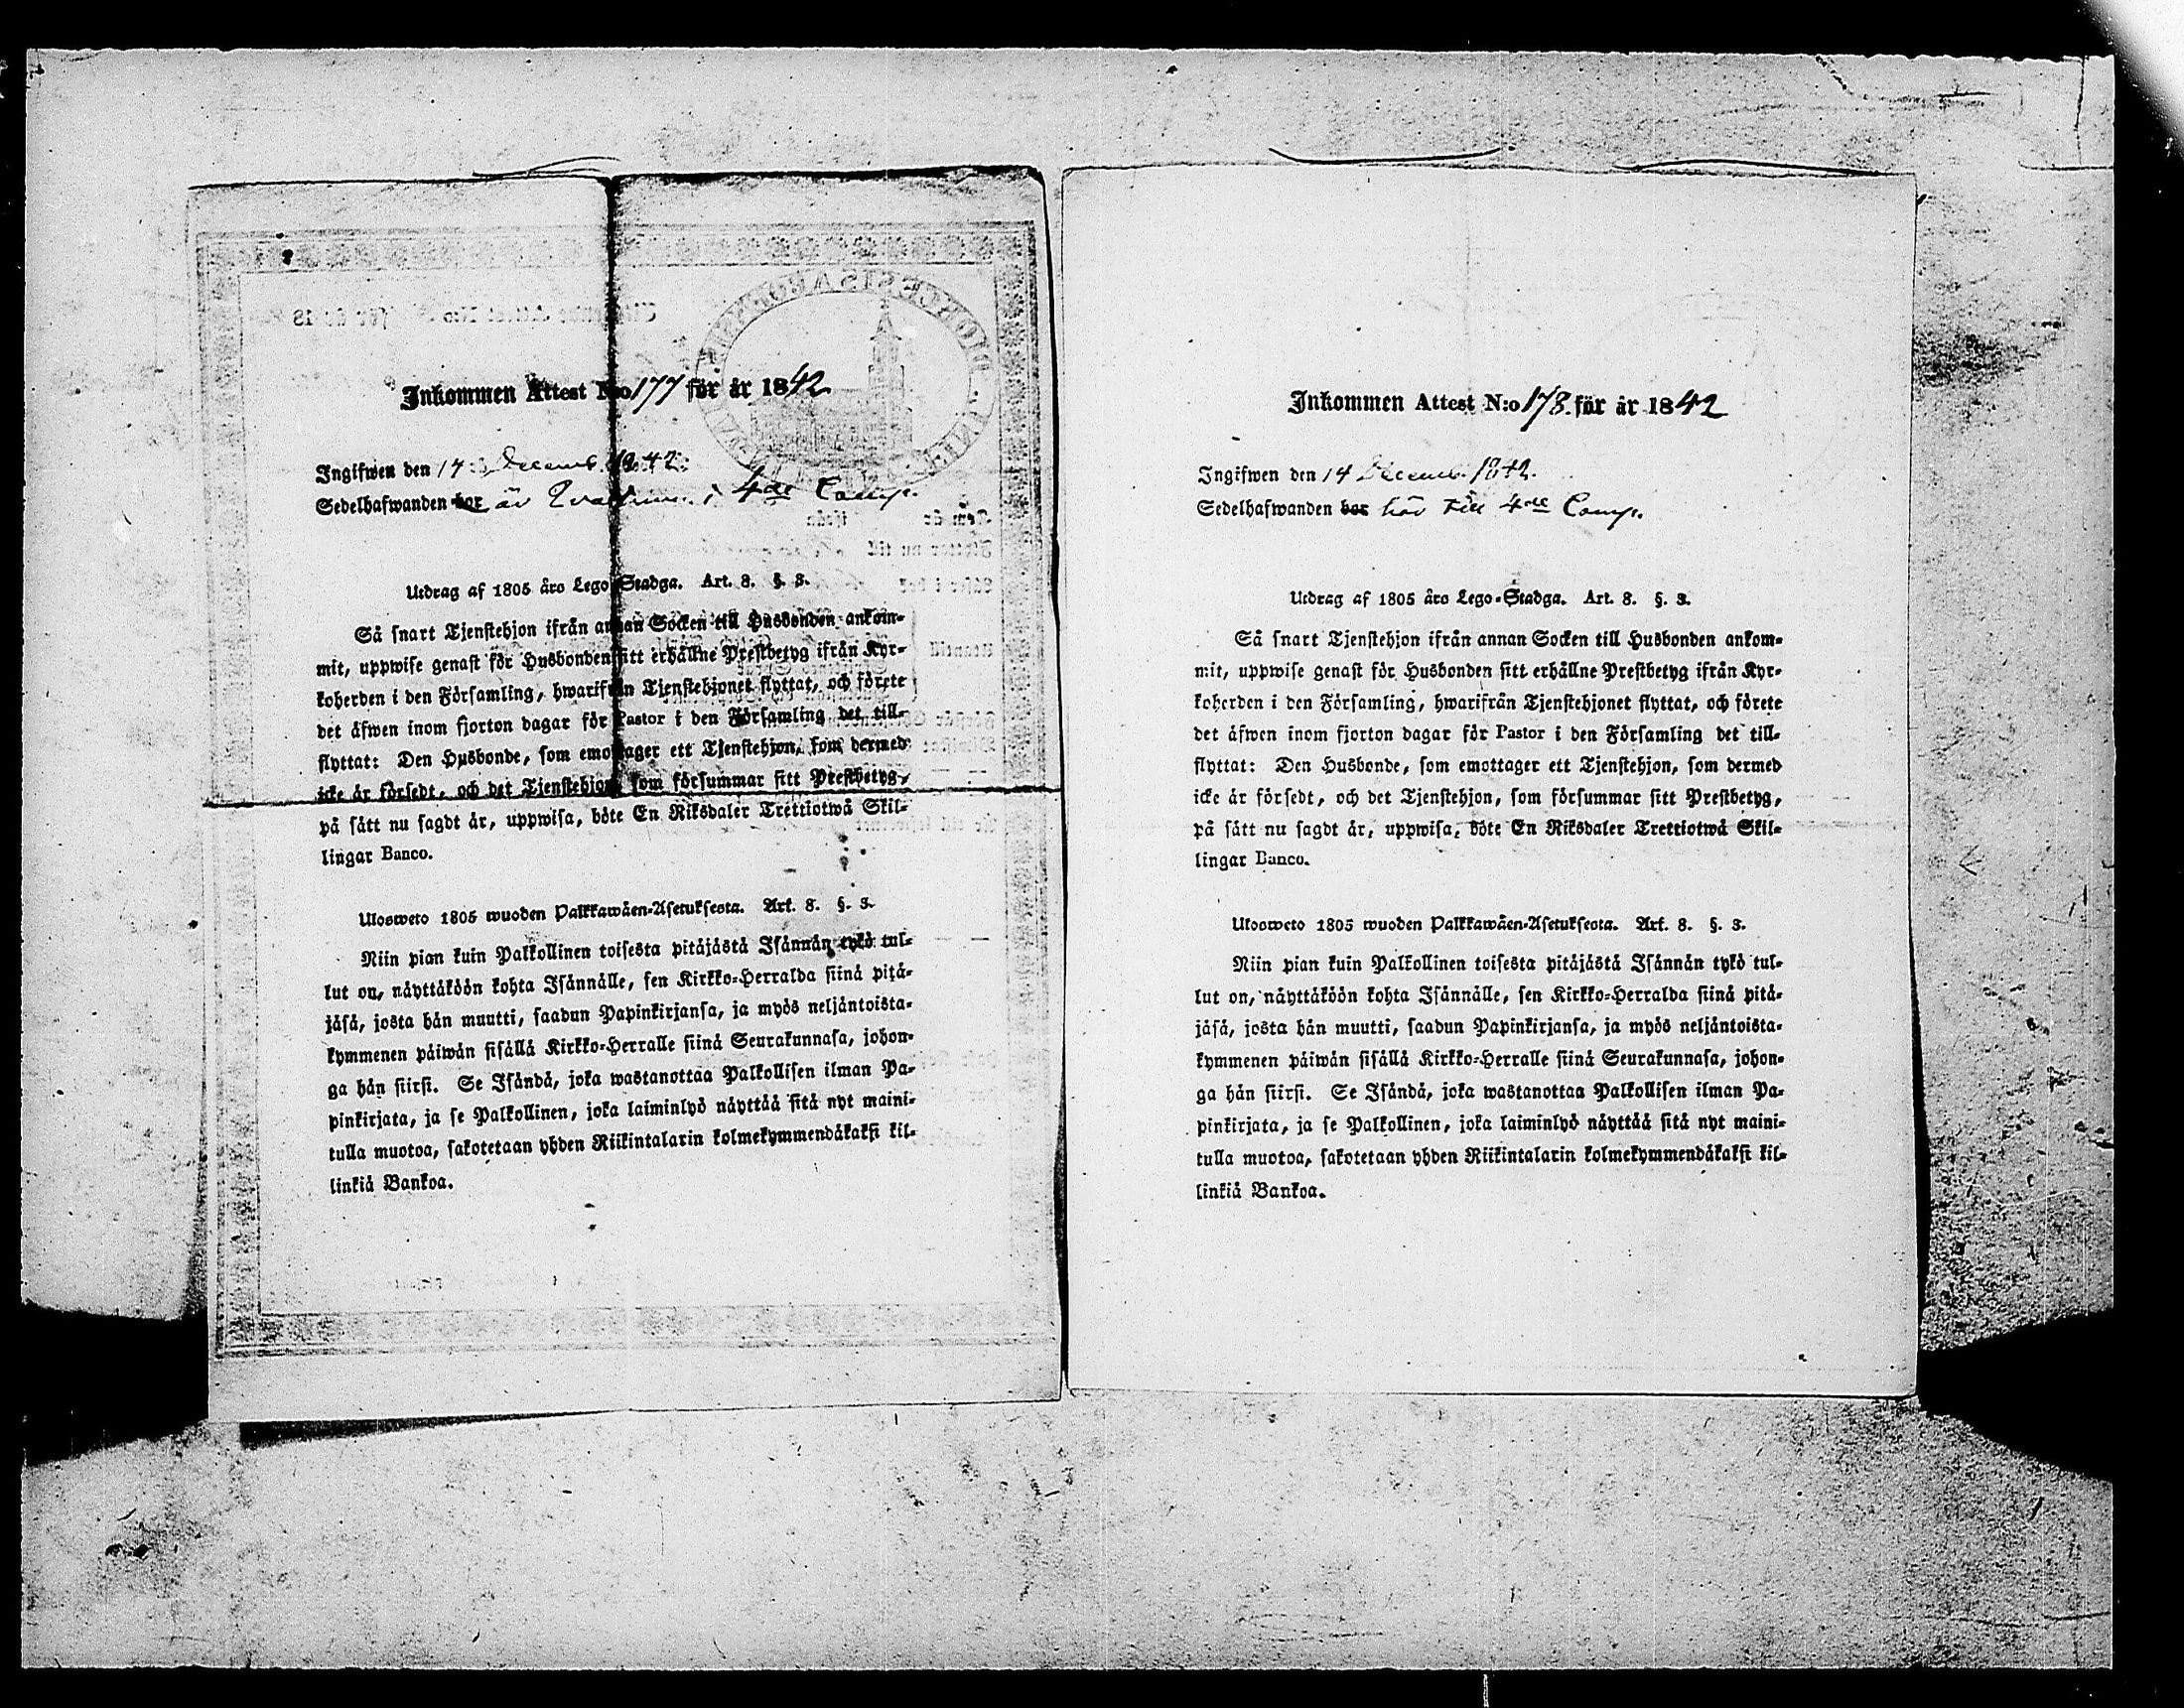 Inkommen Attest N:o 177 för år 1842
Ingifwen den 14 Decemb. 1842.
Sedelhafwanden bor är i 4de Comp.
Utdrag af 1805 års Lego-Stadga. Art. 8. §. 3.
Så snart Tjenstehjon ifrån annan Socken till Husbonden ankom-
mit, uppwise genast för Husbonden sitt erhållne Prestbetyg ifrån Kyr-
koherden i den Församling, hwarifrån Tjenstehjonet flyttat, och förete
det äfwen inom fjorton dagar för Pastor i den Församling det till-
flyttat: Den Husbonde, som emottager ett Tjenstehjon, som dermed
icke är försedt, och det Tjenstehjon, som försummar sitt Prestbetyg,
på sätt nu sagdt är, uppwisa, böte En Riksdaler Trettiotwå Skil-
lingar Banco.
Ulosweto 1805 wuoden Palkkawäen-Asetuksesta. Art. 8. §. 3.
Niin pian kuin Palkollinen toisesta pitäjästä Isännän tykö tul-
lut on, näyttäköön kohta Isännälle, sen Kirkko-Herralda siinä pitä-
jäsä, josta hän muutti, saadun Papinkirjansa, ja myös neljäntoista-
kymmenen päiwän sisällä Kirkko-Herralle siinä Seurakunnasa, johon-
ga hän siirsi. Se Isändä, joka wastanottaa Palkollisen ilman Pa-
pinkirjata, ja se Palkollinen, joka laiminlyö näyttää sitä nyt maini-
tulla muotoa, sakotetaan yhden Riikintalarin kolmekymmendäkaksi kil-
linkiä Bankoa.
Inkommen Attest N:o 178 för år 1842
Ingifwen den 14 Decemb. 1842.
Sedelhafwanden bor hör till 4de Comp.
Utdrag af 1805 års Lego-Stadga. Art. 8. §. 3.
Så snart Tjenstehjon ifrån annan Socken till Husbonden ankom-
mit, uppwise genast för Husbonden sitt erhållne Prestbetyg ifrån Kyr-
koherden i den Församling, hwarifrån Tjenstehjonet flyttat, och förete
det äfwen inom fjorton dagar för Pastor i den Församling det till-
flyttat: Den Husbonde, som emottager ett Tjenstehjon, som dermed
icke är försedt, och det Tjenstehjon, som försummar sitt Prestbetyg,
på sätt nu sagdt är, uppwisa, böte En Riksdaler Trettiotwå Skil-
lingar Banco.
Ulosweto 1805 wuoden Palkkawäen-Asetuksesta. Art. 8. §. 3.
Niin pian kuin Palkollinen toisesta pitäjästä Isännän tykö tul-
lut on, näyttäköön kohta Isännälle, sen Kirkko-Herralda siinä pitä-
jäsä, josta hän muutti, saadun Papinkirjansa, ja myös neljäntoista-
kymmenen päiwän sisällä Kirkko-Herralle siinä Seurakunnasa, johon-
ga hän siirsi. Se Isändä, joka wastanottaa Palkollisen ilman Pa-
pinkirjata, ja se Palkollinen, joka laiminlyö näyttää sitä nyt maini-
tulla muotoa, sakotetaan yhden Riikintalarin kolmekymmendäkaksi kil-
linkiä Bankoa.